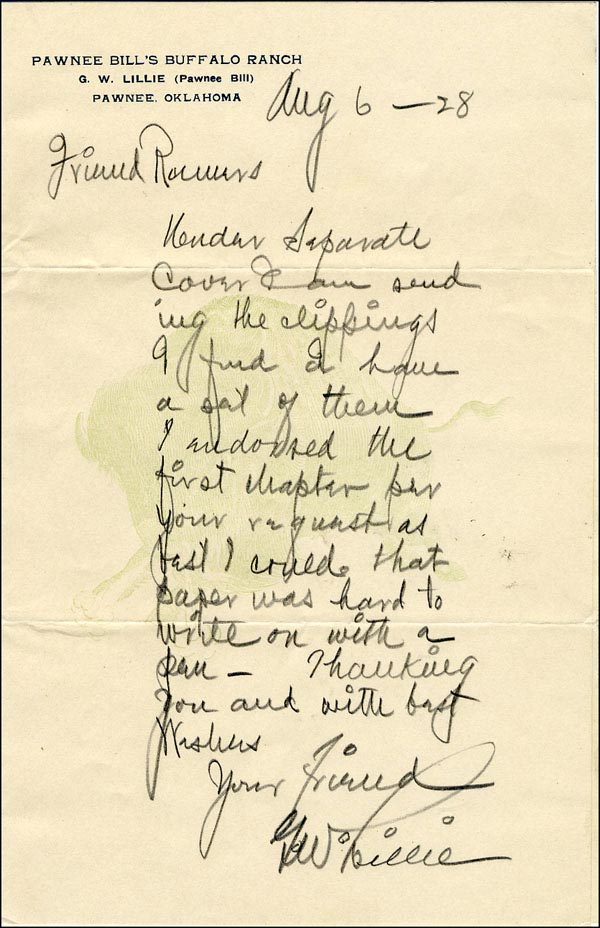 PAWNEE BILL'S BUFFALO RANCH
G. W. LILLIE (Pawnee Bill)
PAWNEE, OKLAHOMA
Aug 6 — 28
Friend
Under Separate
Cover I am send
ing the clippings
I find I have
a set of them
I endorsed the
first chapter per
your request as
best I could. that
paper was hard to
write on with a
pen — Thanking
you and with best
Wishes
Your Friend
GW Lillie